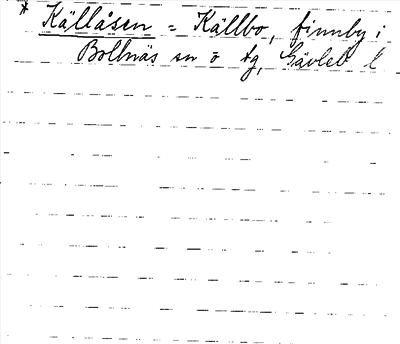 * Källåsen = Källbo, finnby i
Bollnäs sn o tg, Gävleb l